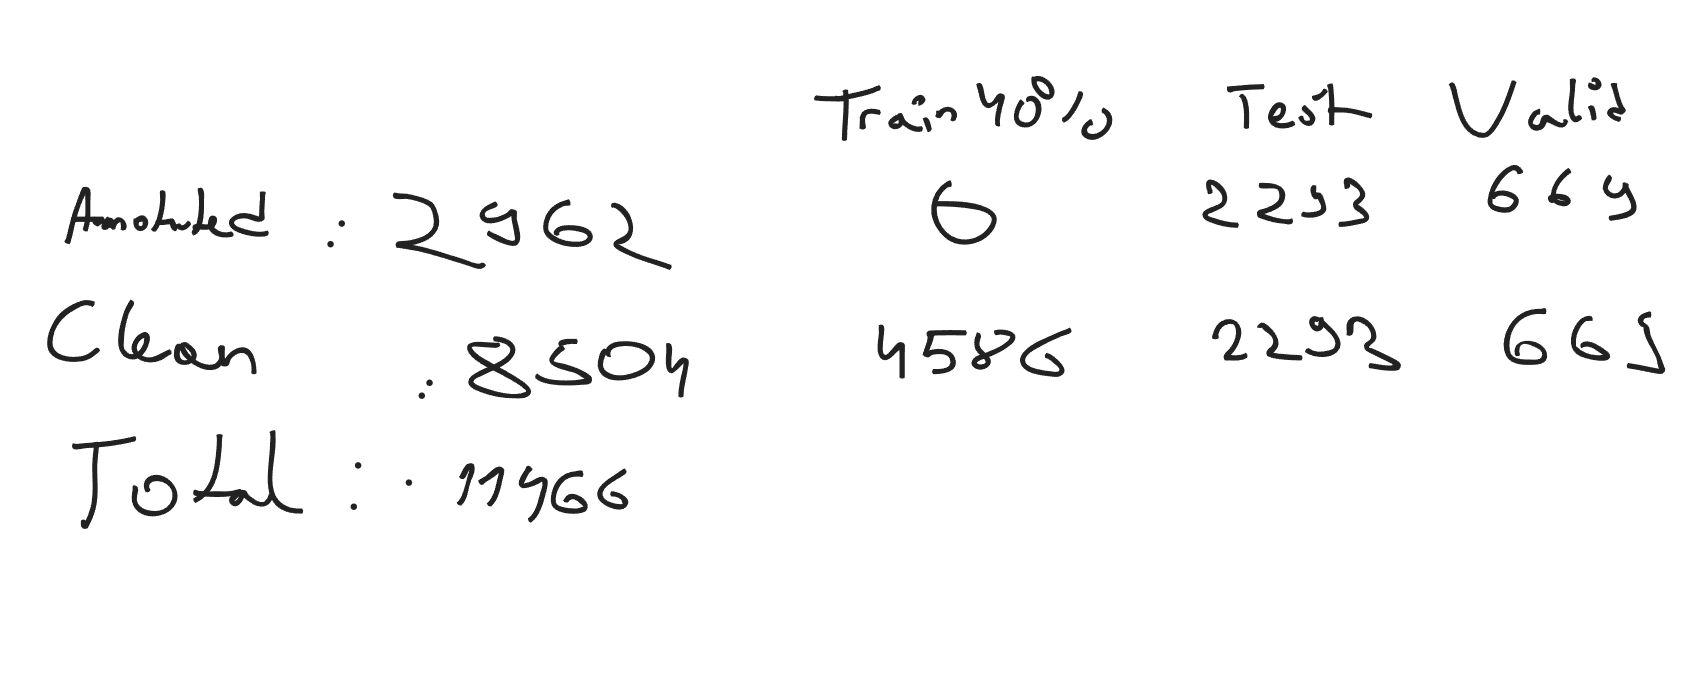 Train 40% Test Valid
Annotated : 2962 0 2293 669
Clean : 8504 4586 2293 669
Total : . 11466